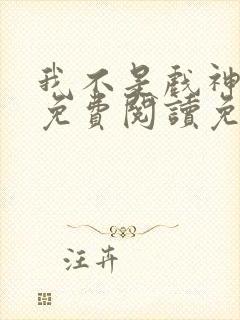 我不是戲神
免費閱讀免
汪卉